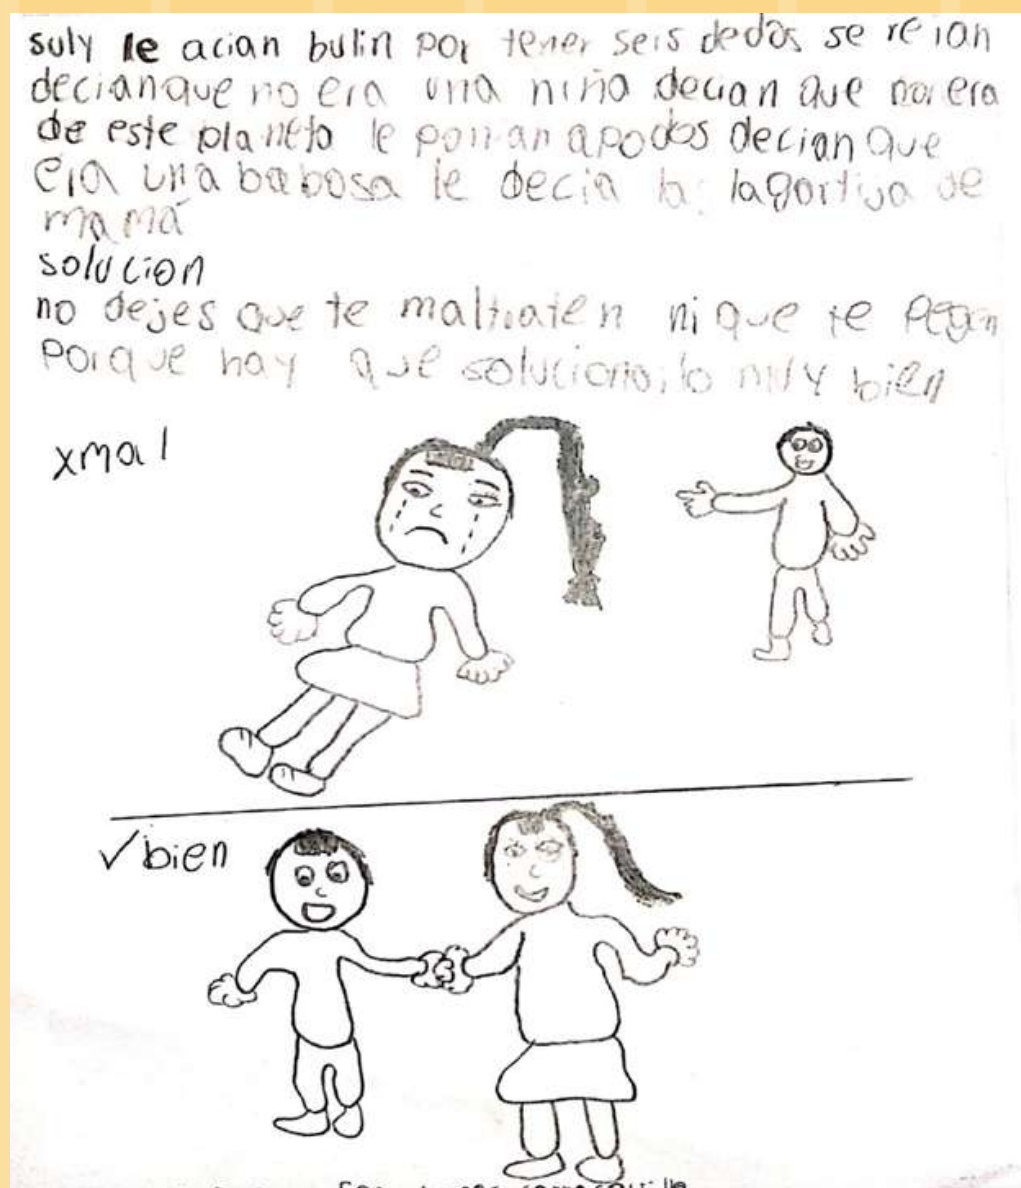 suly le acian bulin por tener seis dedos se reian
decian que no era una niña decian que no era
de este planeta le ponian apodos decian que
era una babosa le decia la lagartija de
mamá
solucion
no dejes que te maltraten ni que te pegen
porque hay que solucionarlo muy bien
x mal
✓ bien